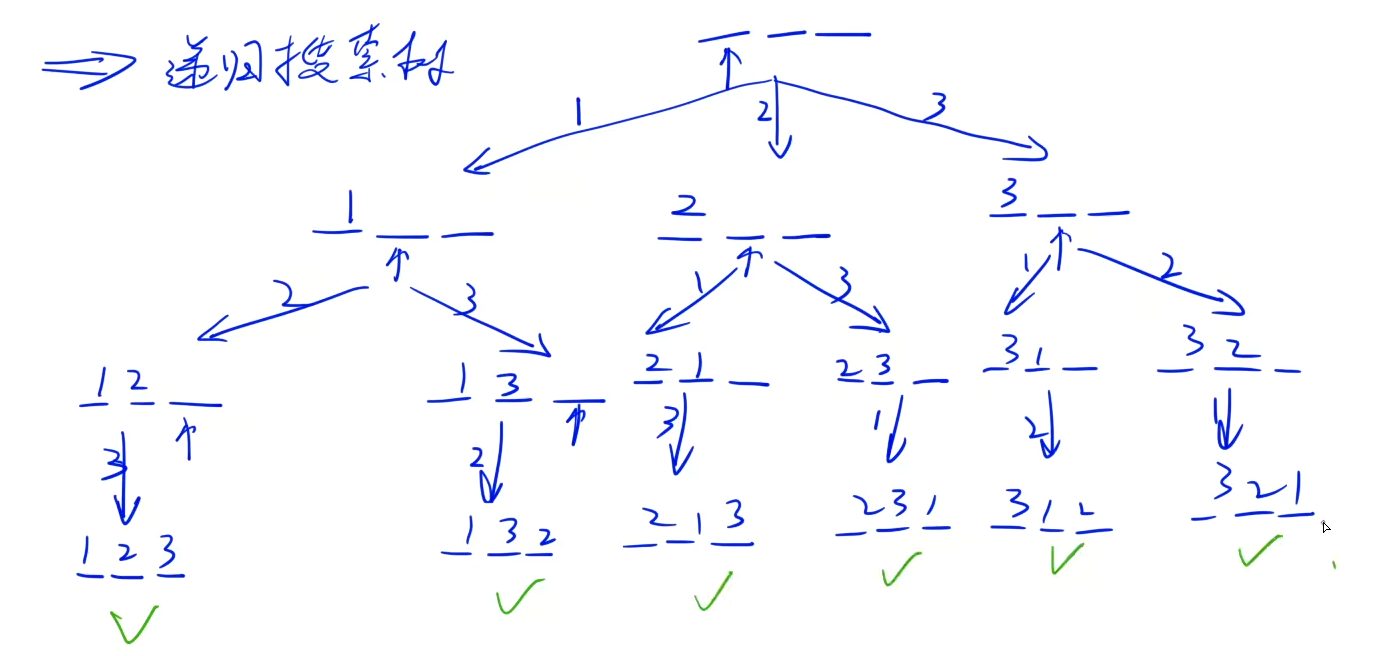 ⇒ 递归搜索树
_ _ _
1 2 3
1 _ _
2 _ _
3 _ _
2 3 1 3 1 2
1 2 _
1 3 _
2 1 _
2 3 _
3 1 _
3 2 _
3 2 3 1 2 1
1 2 3
1 3 2
2 1 3
2 3 1
3 1 2
3 2 1